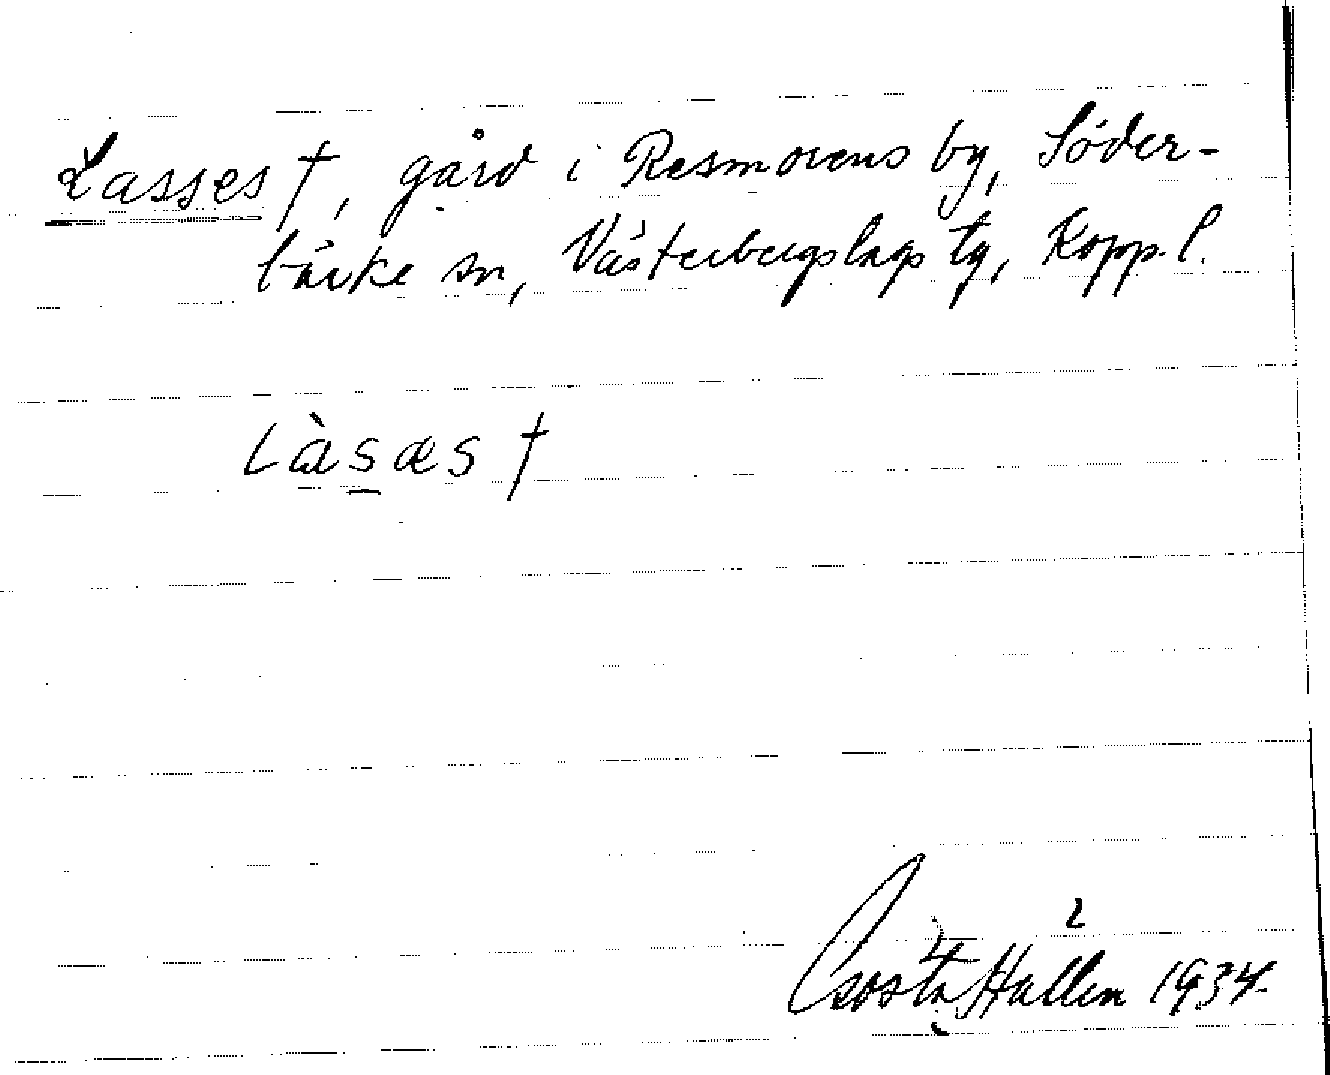 Lasses †, gård i Resmorens by, Söder-
bärke sn, Västerbergslags tg, Kopp. l.
Làsæs †
Gösta Hallén 1934